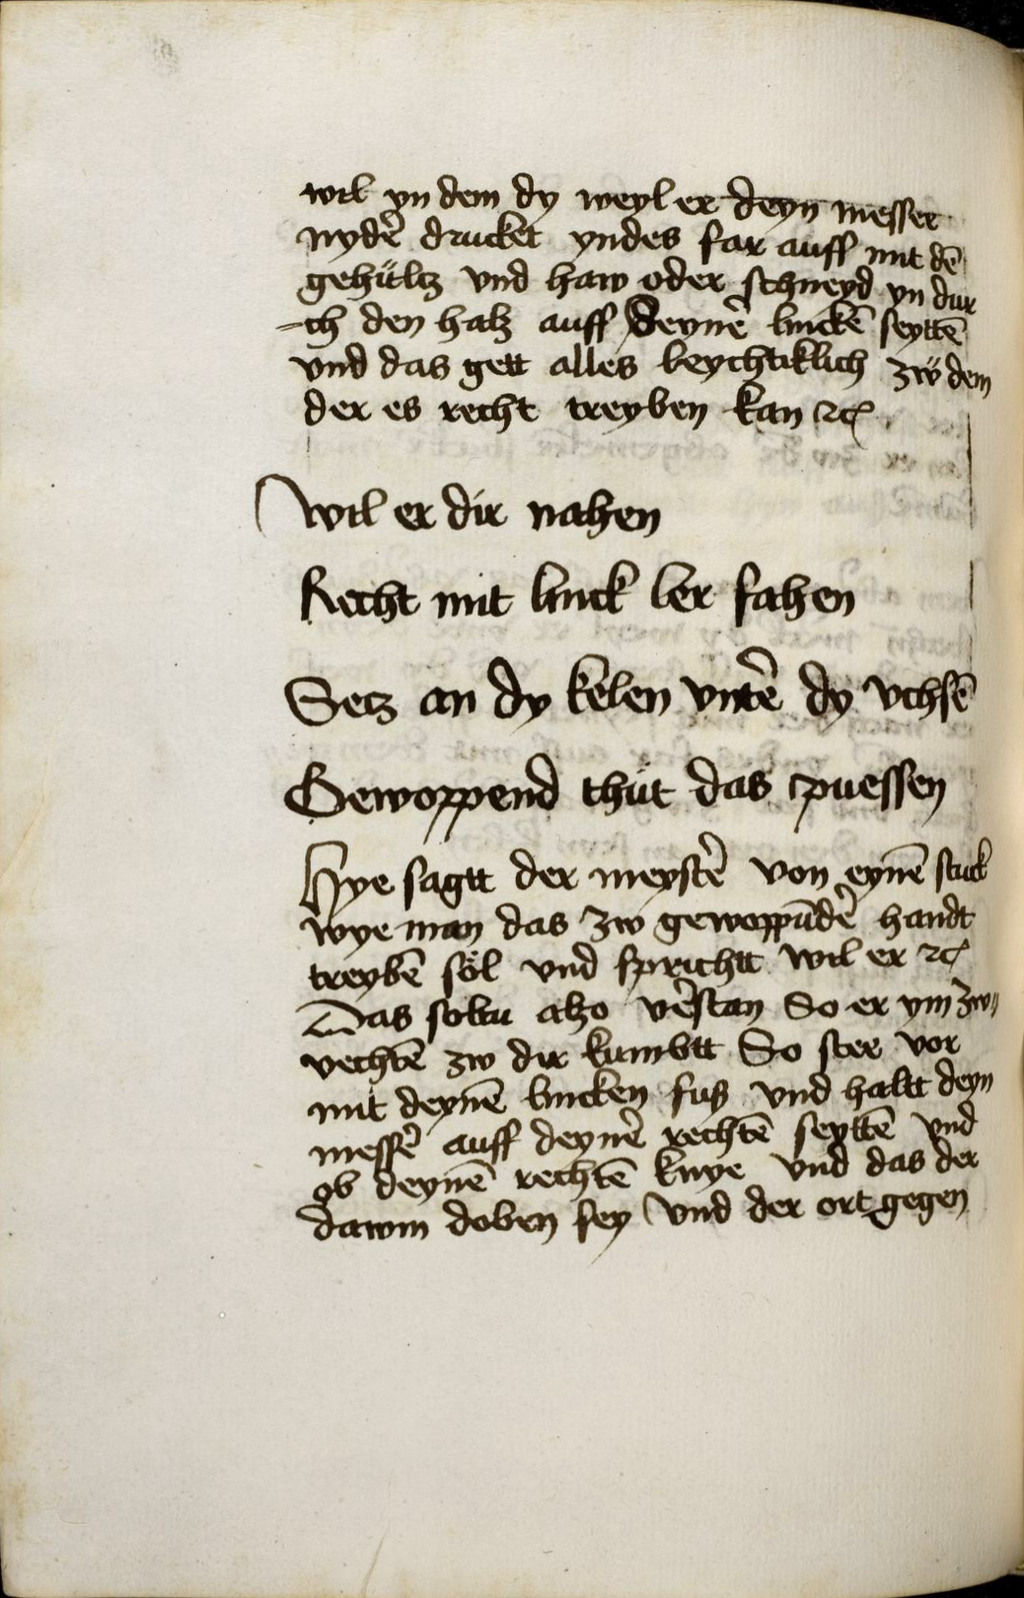 wil yn dem dy weyl er deyn messer
nydē drucket yndes far auff mit dē
gehültz vnd haw oder schneyd yn dur
-ch den halz auff deynē linckē seyttē
vnd das gett alles leychtiklich zẅ dem
der es recht treyben kan ⁊c
Wil er dir nahen
Recht mit linck ler fahen
Setz an dy kelen vntē dy vchsē
Gewoppend thüt das puessen
Hye sagtt der meystē von eynē stuck
wye man das zw gewoppūdē handt
treybē söl vnd sprichtt wil er ⁊c
Das soltu alzo vēstan So er ym zw„
vechtē zw dir kumbtt So stee vor
mit deynē lincken fus vnd haltt deyn
messē auff deynē rechtē seyttē vnd
ob deynē rechtē knye vnd das der
dawm doben sey vnd der ort gegen